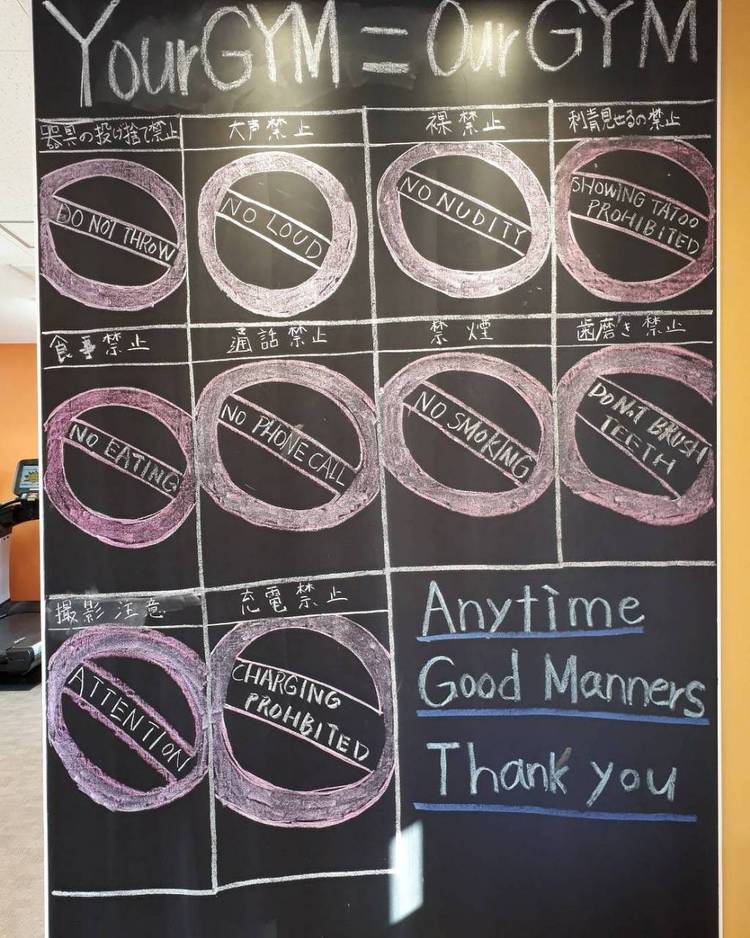 YourGYM = OurGYM
器具の投げ捨て禁止
大声禁止
裸禁止
刺青見せるの禁止
DO NOT THROW
NO LOUD
NO NUDITY
SHOWING TATOO
PROHIBITED
食事禁止
通話禁止
禁煙
歯磨き禁止
NO EATING
NO PHONE CALL
NO SMOKING
DO NOT BRUSH
TEETH
撮影注意
充電禁止
ATTENTION
CHARGING
PROHBITED
Anytime
Good Manners
Thank you